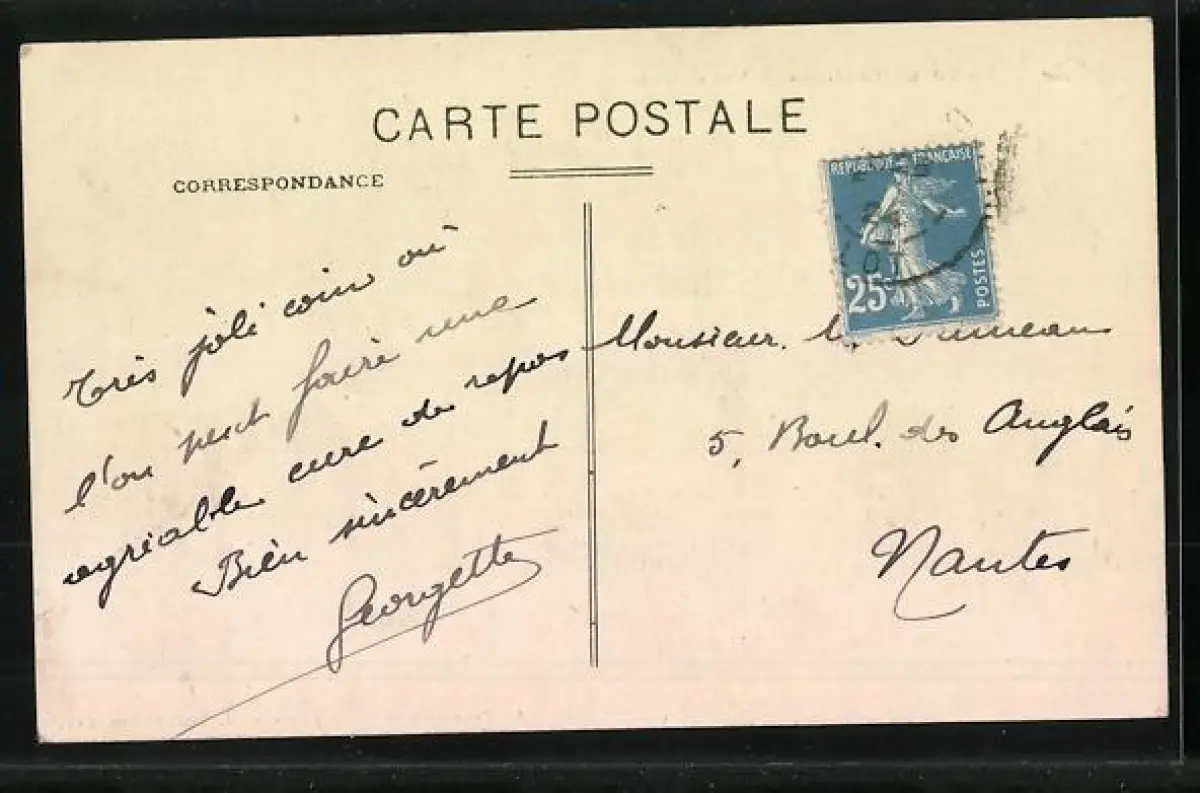 CARTE POSTALE
CORRESPONDANCE
REPUBLIQUE FRANÇAISE
25c
POSTES
Très joli coin où
l'on peut faire une
agréable cure de repos
Bien sincèrement
Georgette
Monsieur
5, Boul. des Anglais
Nantes